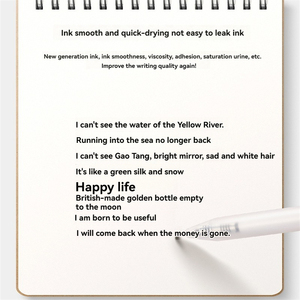 Ink smooth and quick-drying not easy to leak ink
New generation ink, ink smoothness, viscosity, adhesion, saturation urine, etc.
Improve the writing quality again!
I can't see the water of the Yellow River.
Running into the sea no longer back
I can't see Gao Tang, bright mirror, sad and white hair
It's like a green silk and snow
Happy life
British-made golden bottle empty
to the moon
I am born to be useful
I will come back when the money is gone.